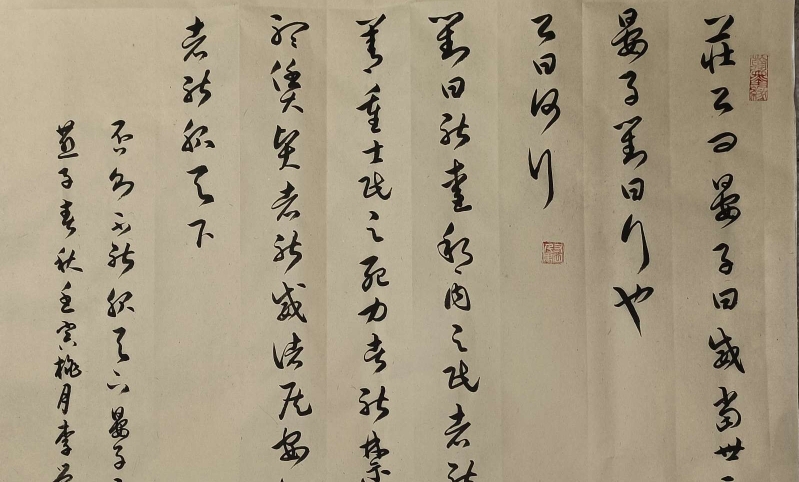 莊公問晏子曰威當世
晏子對曰行也
公曰何行
對曰能愛邦內之民者能
善重士民之死力者能禁
聽賃賢者能威諸侯安
者能服天下
否則不能服天下晏子
晏子春秋壬寅桃月李